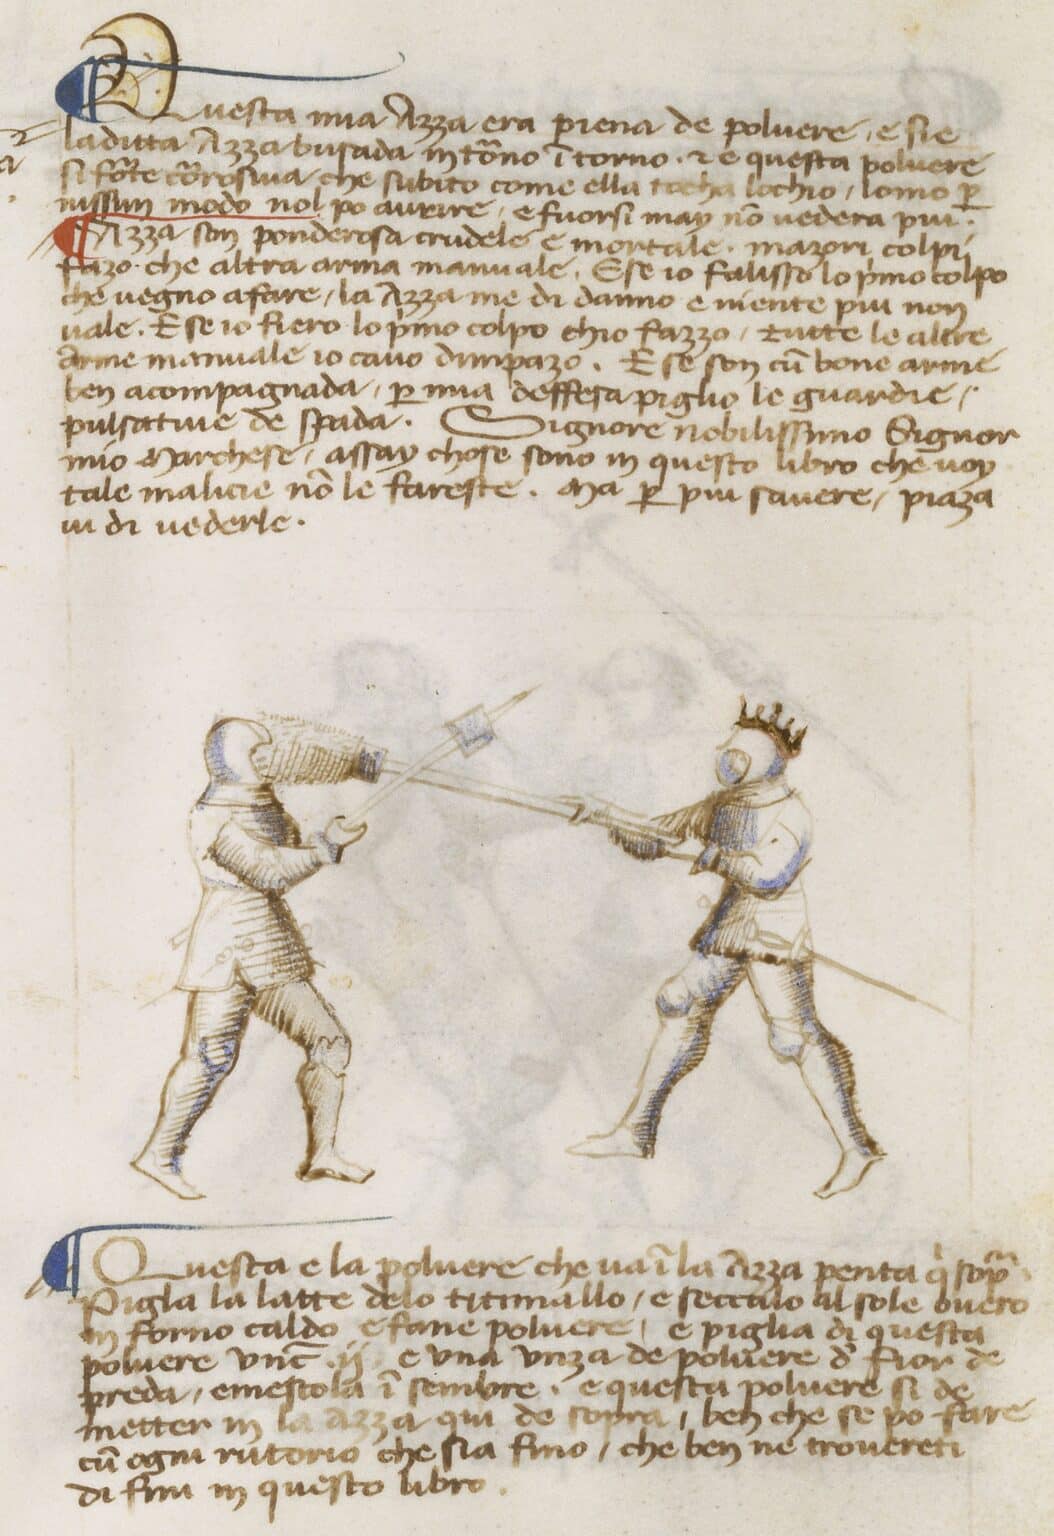 Questa mia Azza era piena de polvere, e si e
la ditta Azza busada intõno ĩtorno. ⁊ e questa polvere
si fõte cõrosiva che subito come ella tocha lochio, lomo ꝑ
nissun modo nol po avrire, e fuorsi may nõ vedera piu.
Azza son ponderosa crudele e mortale. mazori colpi
fazo che altra arma manuale. E se io falisso lo p̃mo colpo
che vegno a fare, la Azza me di danno e niente piu non
vale. E se io fiero lo p̃mo colpo chio fazzo, tutte le altre
arme manuale io cavo dimpazo. E se son cũ bone arme
ben acompagnada, ꝑ mia deffesa piglio le guardie,
pulsative de spada. Signore nobilissimo Signor
mio Marchese, assay chose sono in questo libro che voy
tale malicie nõ le fareste. Ma ꝑ piu savere, piaza
vi di vederle.
Questa e la polvere che va ĩ la Azza penta q̃ sop̃
Pigla la latte delo titimallo, e seccalo al sole overo
in forno caldo e fane polvere, e piglia di questa
polvere vnc̃ .ij. e una unza de polvere d̃ fior de
preda, e mescola ĩ sembre. e questa polvere si de
metter in la Azza qui de sopra, ben che se po fare
cũ ogni rutorio che sia fino, che ben ne trovereti
di fini in questo libro.